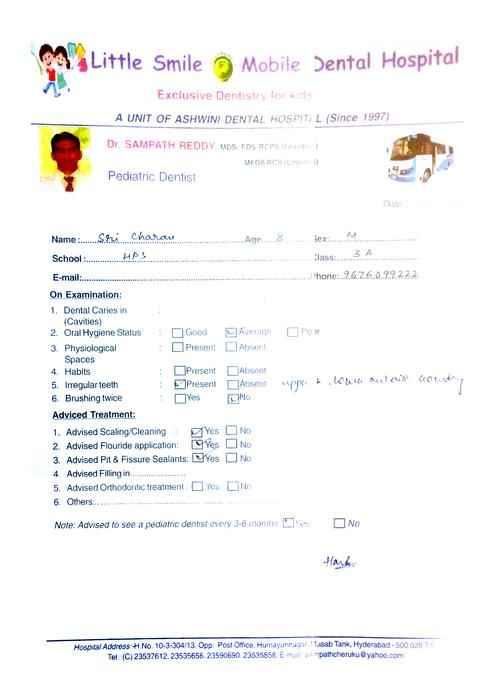 Little Smile Mobile Dental Hospital
Exclusive Dentistry for kids
A UNIT OF ASHWINI DENTAL HOSPITAL (Since 1997)
Dr. SAMPATH REDDY, MDS, FDS RCPS
Pediatric Dentist
Date:
Name: Sri Charan Age 8 Sex: M
School: HPS Class: 3 A
E-mail: Phone: 9676099222
On Examination:
1. Dental Caries in :
(Cavities)
2. Oral Hygiene Status : Good Average Poor
3. Physiological : Present Absent
Spaces
4. Habits : Present Absent
5. Irregular teeth : Present Absent upper & lower anterior crowding
6. Brushing twice : Yes No
Adviced Treatment:
1. Advised Scaling/Cleaning : Yes No
2. Advised Flouride application: Yes No
3. Advised Pit & Fissure Sealants: Yes No
4. Advised Filling in
5. Advised Orthodontic treatment : Yes No
6. Others:
Note: Advised to see a pediatric dentist every 3-6 months Yes No
Hospital Address:-H.No. 10-3-304/13, Opp. Post Office, Humayunnagar, Masab Tank, Hyderabad - 500 028
Tel. :(C) 23537612, 23535656, 23590690, 23535858, E-mail: sampathcheruku@yahoo.com